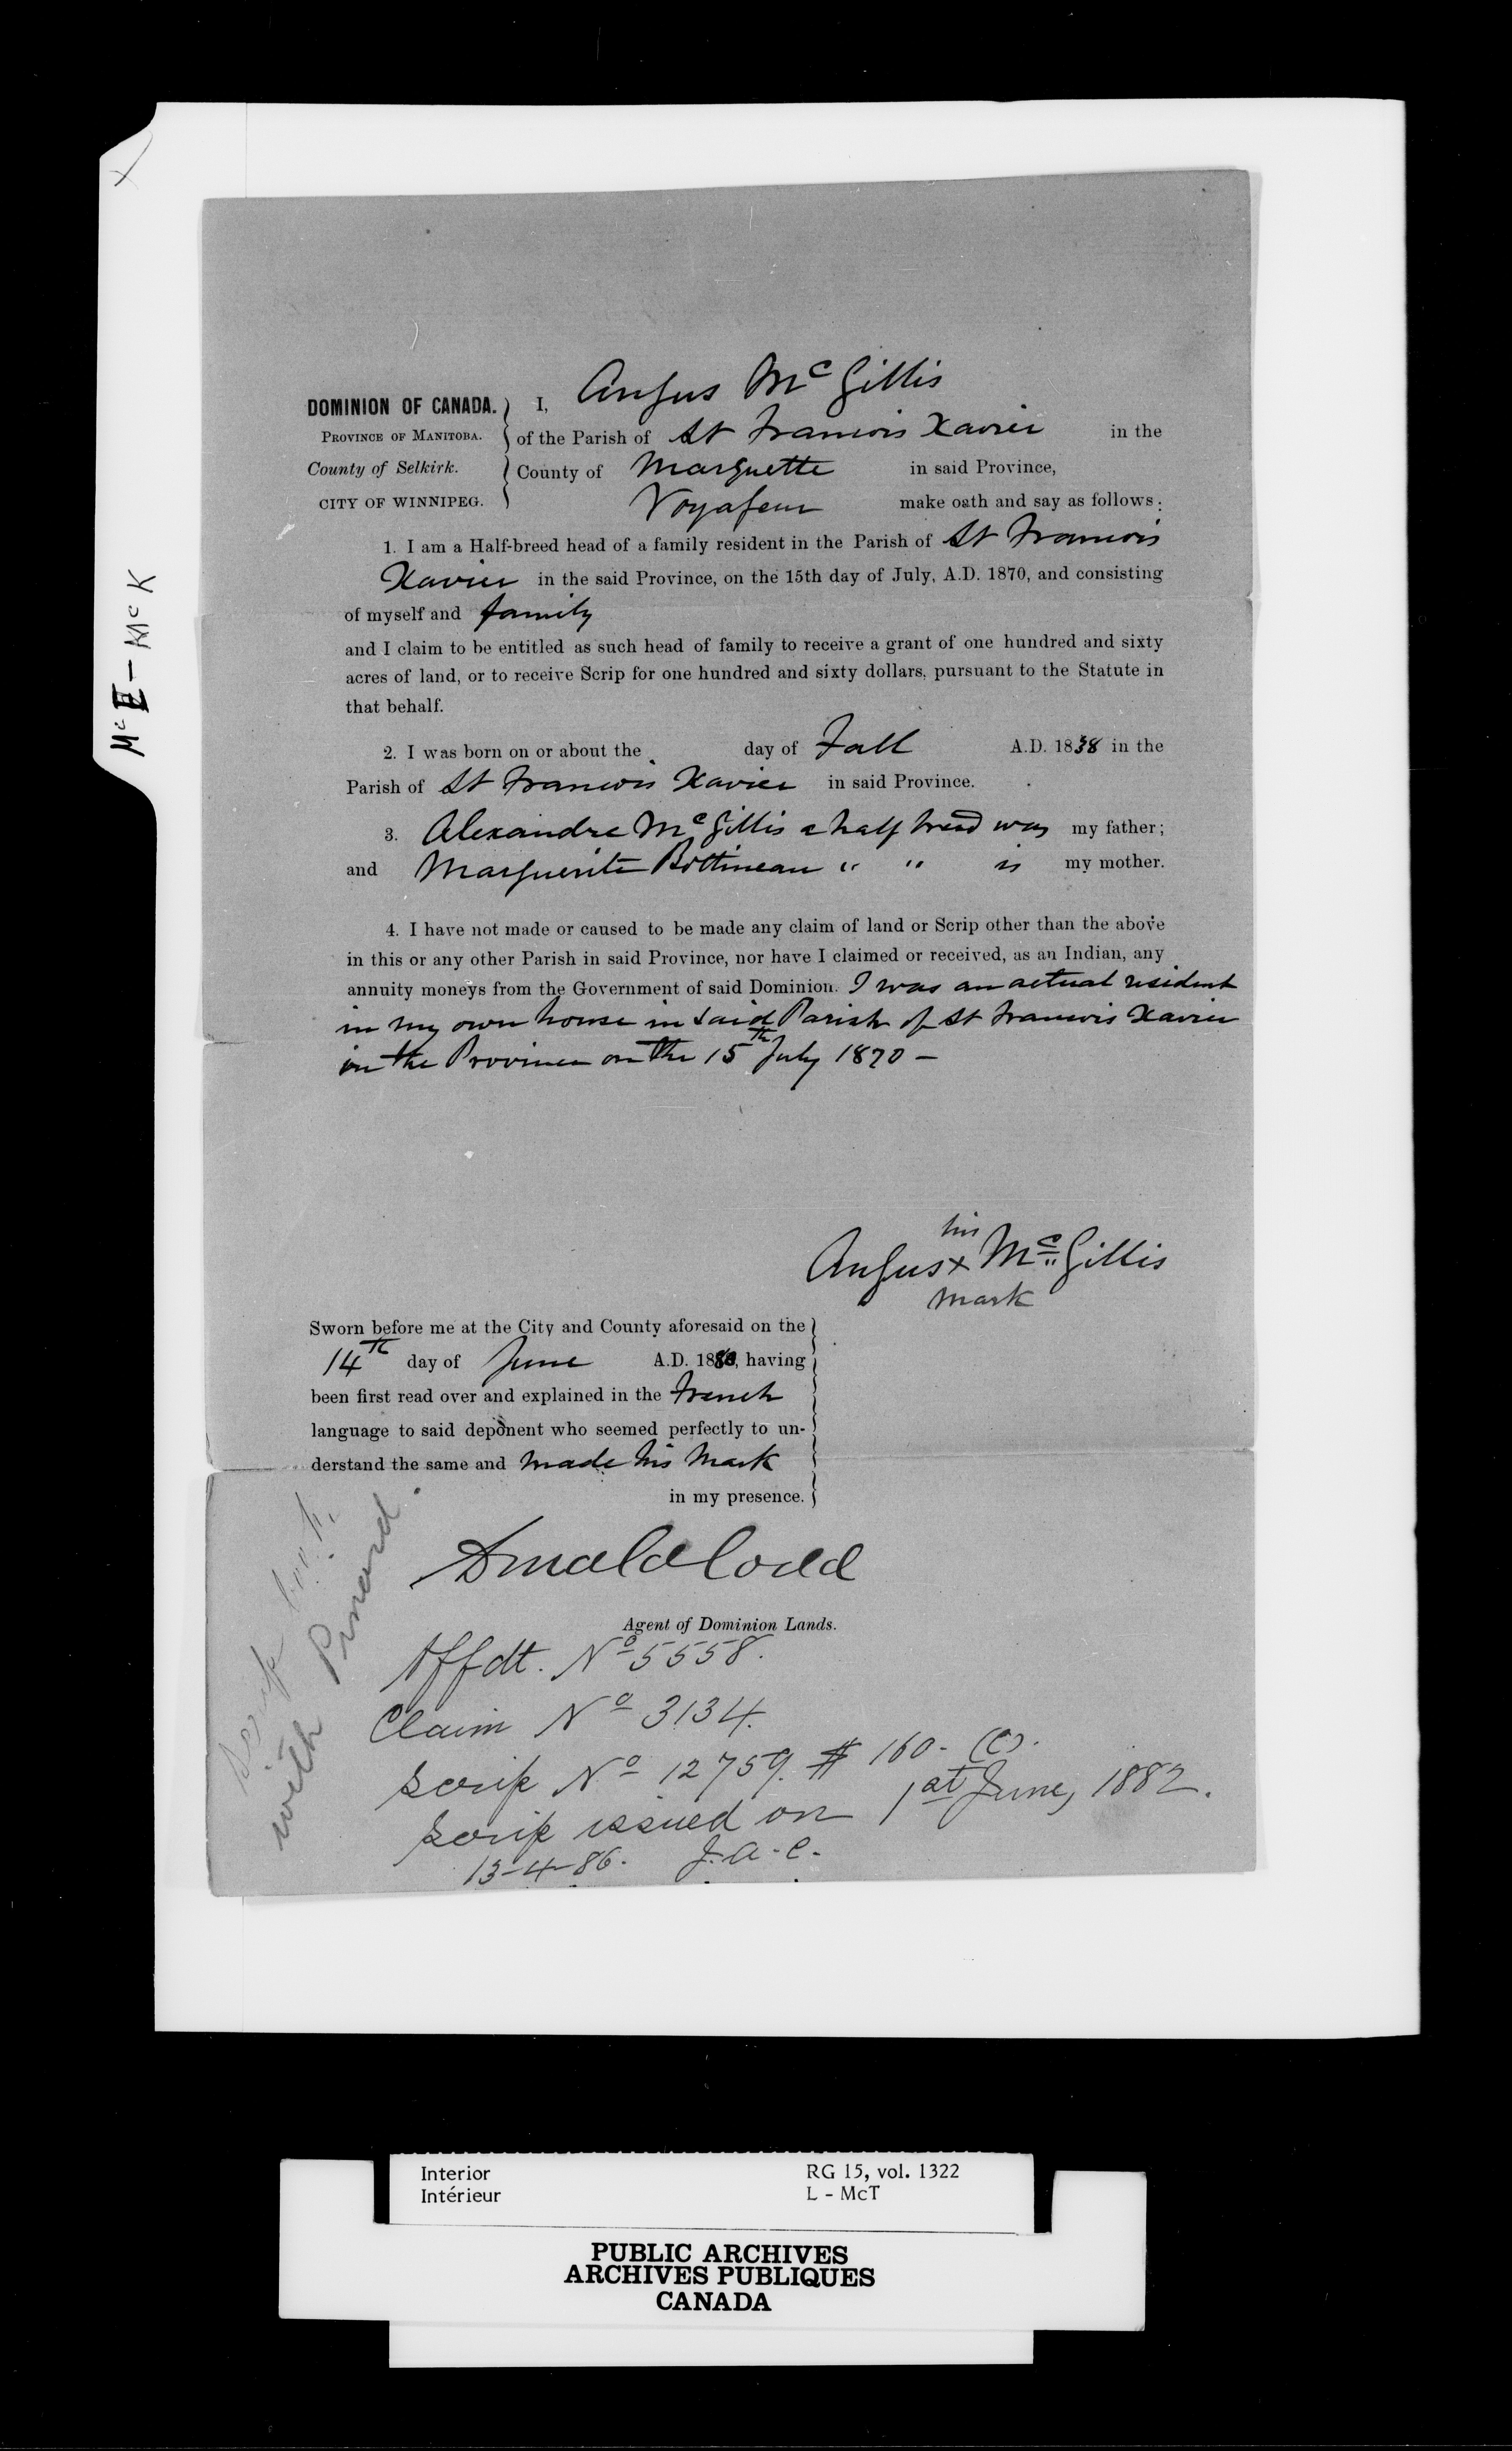 Mc E - McK
DOMINION OF CANADA.
PROVINCE OF MANITOBA.
County of Selkirk.
CITY OF WINNIPEG.
I, Angus Mc Gillis
of the Parish of St Francois Xavier in the
County of Marquette in said Province,
Voyageur make oath and say as follows:
1. I am a Half-breed head of a family resident in the Parish of St Francois
Xavier in the said Province, on the 15th day of July, A.D. 1870, and consisting
of myself and family
and I claim to be entitled as such head of family to receive a grant of one hundred and sixty
acres of land, or to receive Scrip for one hundred and sixty dollars, pursuant to the Statute in
that behalf.
2. I was born on or about the day of Fall A.D. 1838 in the
Parish of St Francois Xavier in said Province.
3. Alexandre Mc Gillis a half breed was my father;
and Marguerite Bottineau " " is my mother.
4. I have not made or caused to be made any claim of land or Scrip other than the above
in this or any other Parish in said Province, nor have I claimed or received, as an Indian, any
annuity moneys from the Government of said Dominion. I was an actual resident
in my own house in said Parish of St Francois Xavier
in the Province on the 15th July 1870 -
his
Angus x Mc Gillis
mark
Sworn before me at the City and County aforesaid on the
14th day of June A.D. 1880, having
been first read over and explained in the French
language to said deponent who seemed perfectly to un-
derstand the same and made his mark
in my presence.
Donald Codd
Agent of Dominion Lands.
Affdt. No 5558.
Claim No 3134.
Scrip No 12759. $ 160 - (C).
Scrip issued on 1st June, 1882.
13-4-86. J.A.C.
Scrip
with Pinard
Interior
Intérieur
RG 15, vol. 1322
L - McT
PUBLIC ARCHIVES
ARCHIVES PUBLIQUES
CANADA